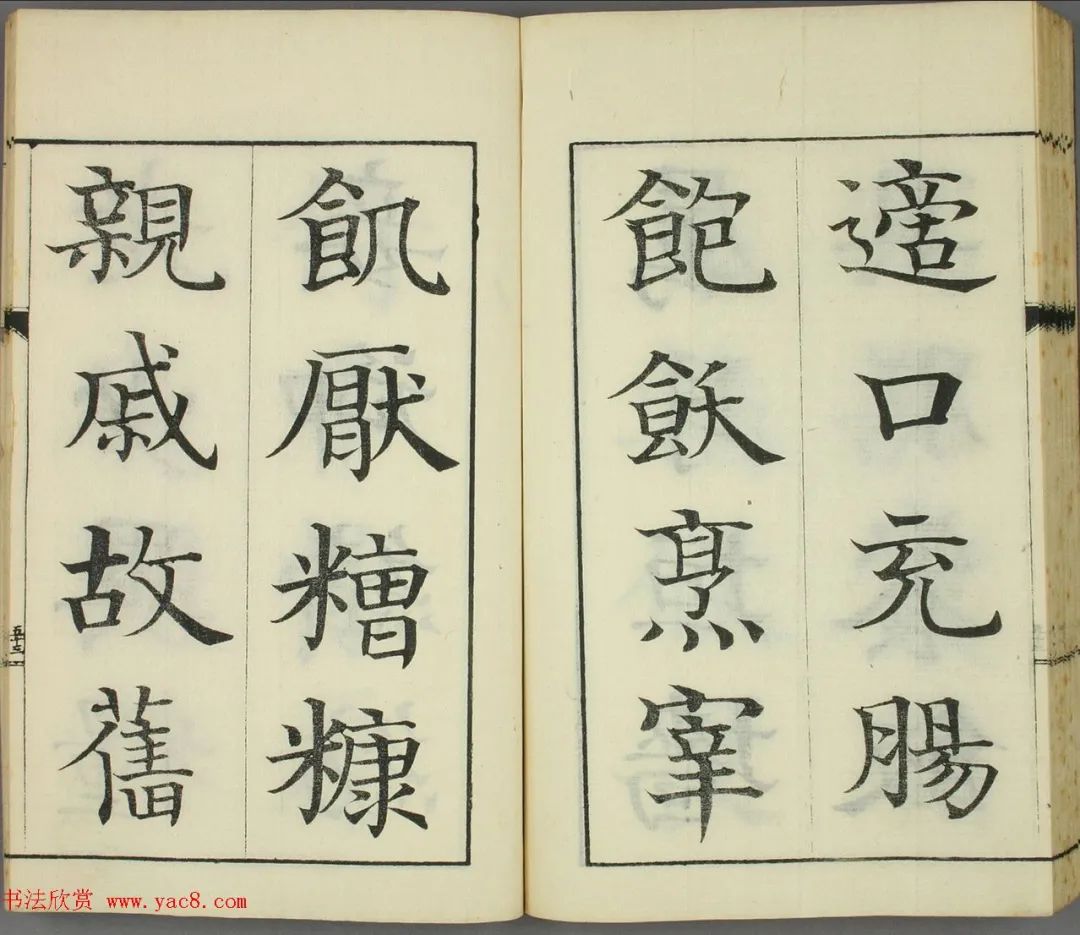 適口充腸
飽飫烹宰
飢厭糟糠
親戚故舊
书法欣赏 www.yac8.com